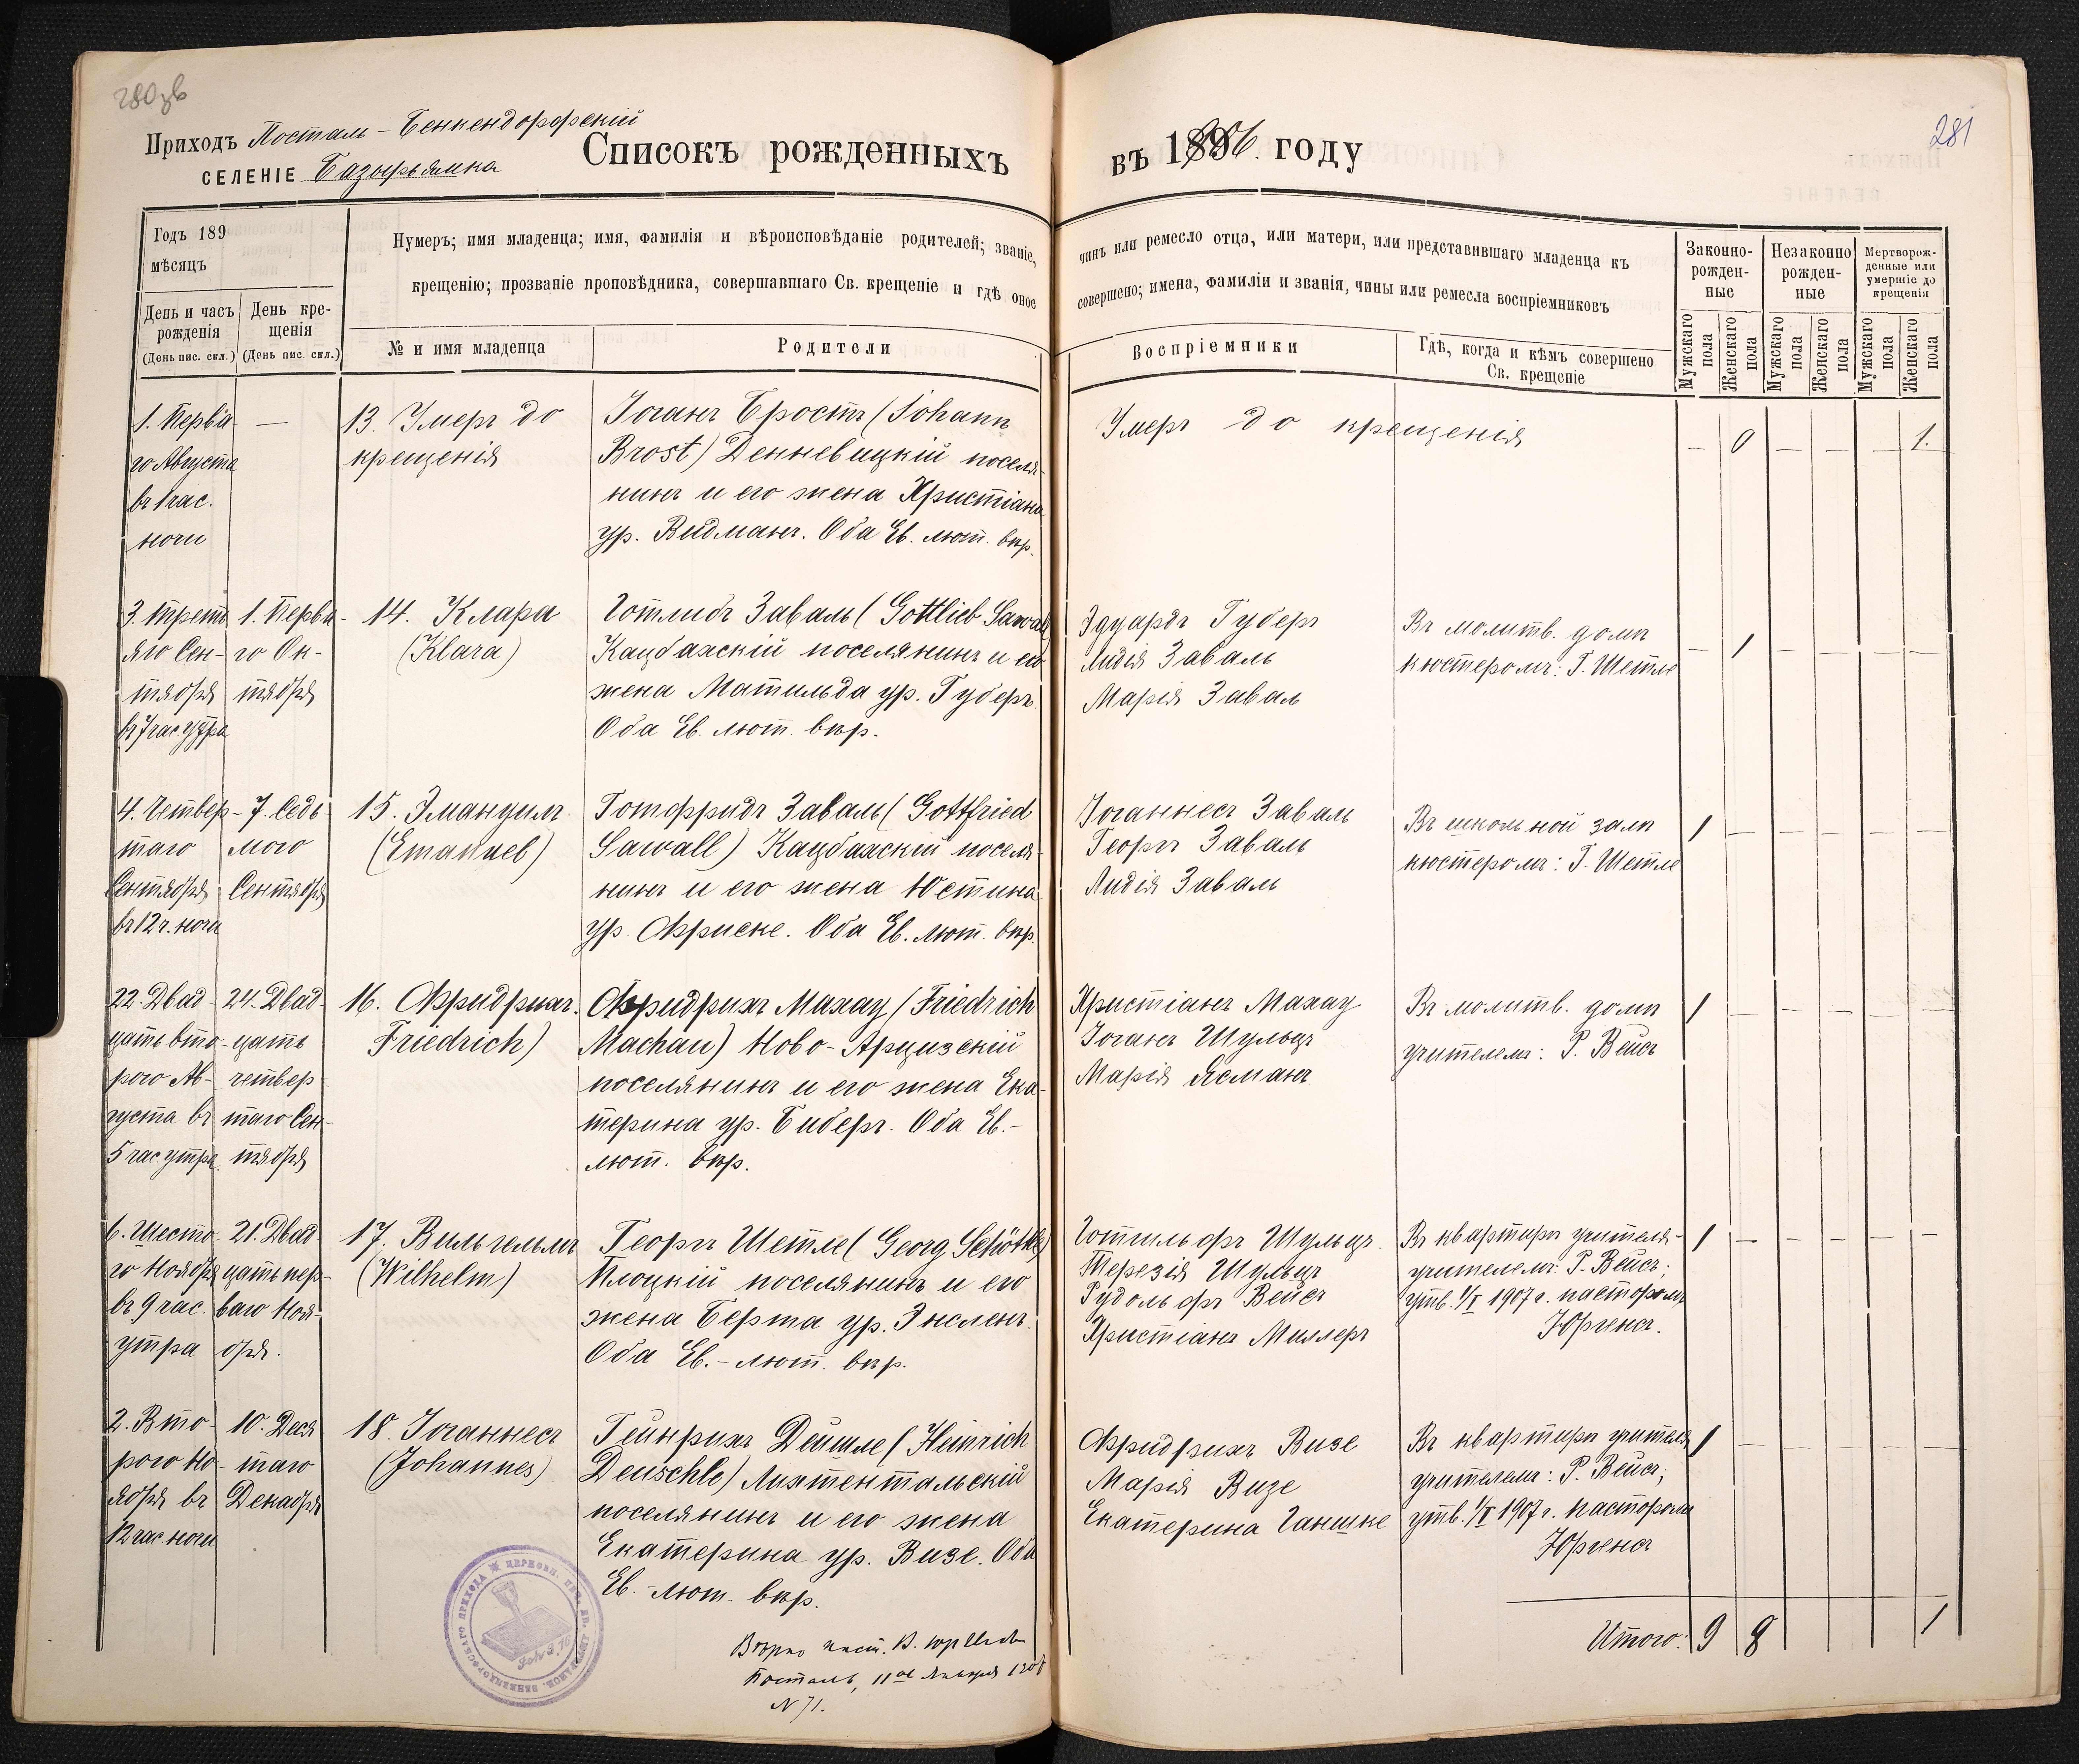 280зв
281
Приходъ Посталь-Бенкендорфскій
СЕЛЕНІЕ Базырьямка
Списокъ рожденныхъ въ 1906. году
Годъ 189
мѣсяцъ
День и часъ рожденія
(День пис. скл.)
День крещенія
(День пис. скл.)
Нумеръ; имя младенца; имя, фамилія и вѣроисповѣданіе родителей; званіе, чинъ или ремесло отца, или матери, или представившаго младенца къ
крещенію; прозваніе проповѣдника, совершавшаго Св. крещеніе и гдѣ оное совершено; имена, фамиліи и званія, чины или ремесла воспріемниковъ
№ и имя младенца
Родители
Воспріемники
Гдѣ, когда и кѣмъ совершено
Св. крещеніе
Законно-
рожден-
ные
Незаконно
рожден-
ные
Мертворож-
денные или
умершіе до
крещенія
Мужскаго пола
Женскаго пола
Мужскаго пола
Женскаго пола
Мужскаго пола
Женскаго пола
1. Перва-
го Августа
въ 1 час.
ночи
—
13. Умеръ до
крещенія
Іоганъ Бростъ (Johann
Brost) Денневицкій поселя-
нинъ и его жена Христіана
ур. Видманъ. Оба Ев. лют. вѣр.
Умеръ до крещенія
— 0 — — — 1.
3. Треть-
яго Сен-
тября
въ 7 час утра
1. Перва-
го Ок-
тября
14. Клара
(Klara)
Готлибъ Заваль (Gottlieb Sawall)
Кацбахскій поселянинъ и его
жена Матильда ур. Губеръ.
Оба Ев. лют. вѣр.
Эдуардъ Губеръ
Лидія Заваль
Марія Завал
Въ молитв. домѣ
кюстеромъ: Г. Шетле
— 1 — — — —
4. Четвер-
таго
Сентября
въ 12 ч. ночи
7. Седь-
мого
Сентября
15. Эмануилъ
(Emanuel)
Готфридъ Заваль (Gottfried
Sawall) Кацбахскій поселя-
нинъ и его жена Юстина
ур. Фриске. Оба Ев. лют. вѣр.
Іоганнесъ Заваль
Георгъ Заваль
Лидія Заваль
Въ школьной залѣ
кюстеромъ: Г. Шетле
1 — — — — —
22. Двад-
цать вто-
рого Ав-
густа въ
5 час утра
24. Двад-
цать
четвер-
таго Сен-
тября
16. Фридрихъ.
Friedrich)
Фридрихъ Махау (Friedrich
Machau) Ново-Арцизскій
поселянинъ и его жена Ека-
терина ур. Биберъ. Оба Ев.-
лют. вѣр.
Христіанъ Махау
Іоганъ Шульцъ
Марія Ясманъ
Въ молитв. домѣ
учителемъ: Р. Вейсъ
1 — — — — —
6. Шесто-
го Ноября
въ 9 час.
утра
21. Двад-
цать пер-
ваго Ноя-
бря.
17. Вильгельмъ
(Wilhelm)
Георгъ Шетле (Georg Schöttle)
Плоцкій поселянинъ и его
жена Берта ур. Энсленъ.
Оба Ев.-лют. вѣр.
Готгильфъ Шульцъ.
Терезія Шульцъ
Рудольфъ Вейсъ
Христіанъ Миллеръ
Въ квартирѣ учителя-
учителемъ: Р. Вейсъ;
утв. 1/I 1907 г. пасторомъ
Юргенсъ.
1 — — — — —
2. Вто-
рого Но-
ября въ
12 час. ночи
10. Деся-
таго
Декабря
18. Іоганнесъ
(Johannes)
Гейнрихъ Дейшле (Heinrich
Deuschle) Лихтентальскій
поселянинъ и его жена
Екатерина ур. Визе. Оба
Ев.-лют. вѣр.
Фридрихъ Визе
Марія Визе
Екатерина Ганшке
Въ квартирѣ учителя
учителемъ: Р. Вейсъ;
утв. 1/I 1907 г. пасторомъ
Юргенсъ
1 — — — — —
Итого: 9 8 1
Вѣрно паст.
Посталь, 11го Января
N 71.